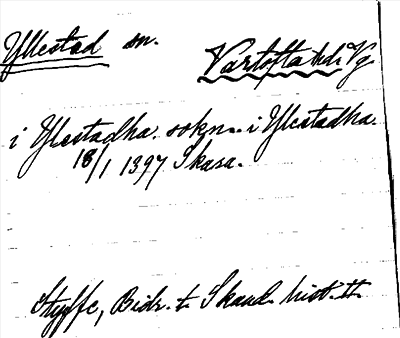 Yllestad sn. Vartofta hd. Vg.
i Ylestadha sokn i Ylestadha
18/1 1397 Skara.
Styffe, Bidr. t. Skand. hist. II.